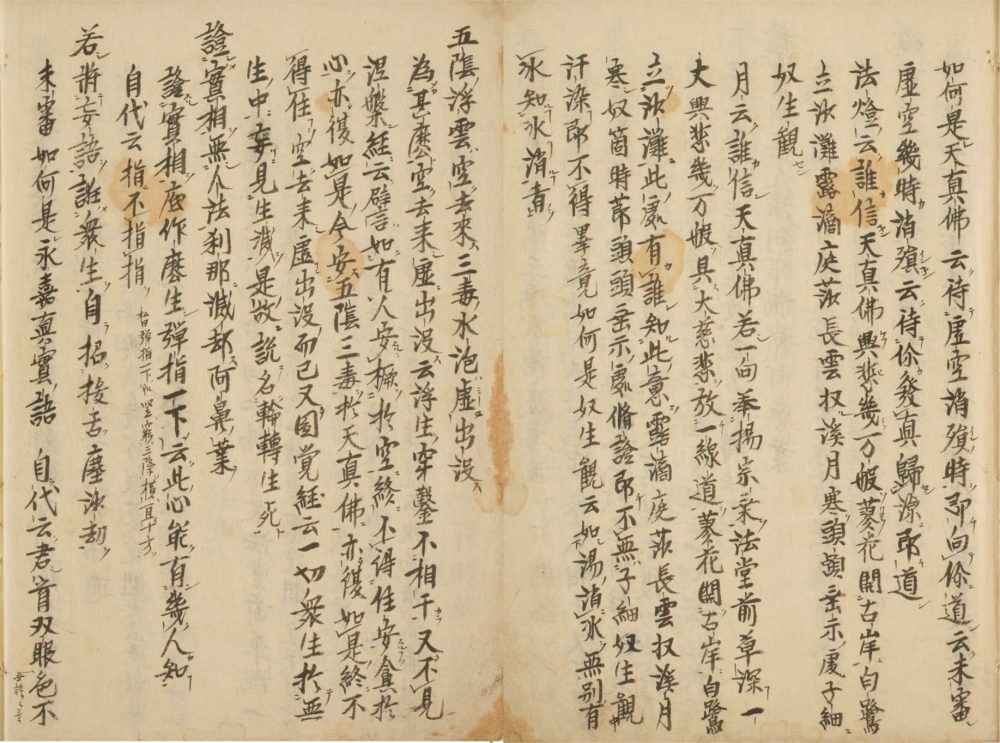 如何是天真佛云待虛空消殞時即向你道云未審
虛空幾時消殞云待你發真歸源即道
法燈云誰信天真佛興悲幾万般蓼花開古岸白鷺
立沙灘露滴庭莎長雲収溪月寒頭頭垂示處子細
奴生觀
月云誰信天真佛若一向奉揚宗乘法堂前草深一
丈興悲幾万般具大慈悲放一線道蓼花開古岸白鷺
立沙灘此處有誰知此意露滴庭莎長雲収溪月
寒奴箇時節頭頭垂示處脩證即不無子細奴生觀
汗染即不得畢竟如何是奴生觀云如湯消氷無別有
氷知氷消者
五陰浮雲空去來三毒水泡虛出沒
為甚麼空去来虛出沒云浮生穿鑿不相干又不見
涅槃経云譬如有人安橛於空終不得住安貪於
心亦復如是今安五陰三毒於天真佛亦復如是終不
得住空去来虛出沒而已又圓覚経云一切衆生於無
生中妄見生滅是故説名輪轉生死
證實相無人法刹那滅却阿鼻業
證實相底作麼生彈指一下云此心能有幾人知
自代云指不指指
若將妄語誑衆生自招拔舌塵沙劫
未審如何是永嘉真實語 自代云君看双眼色不